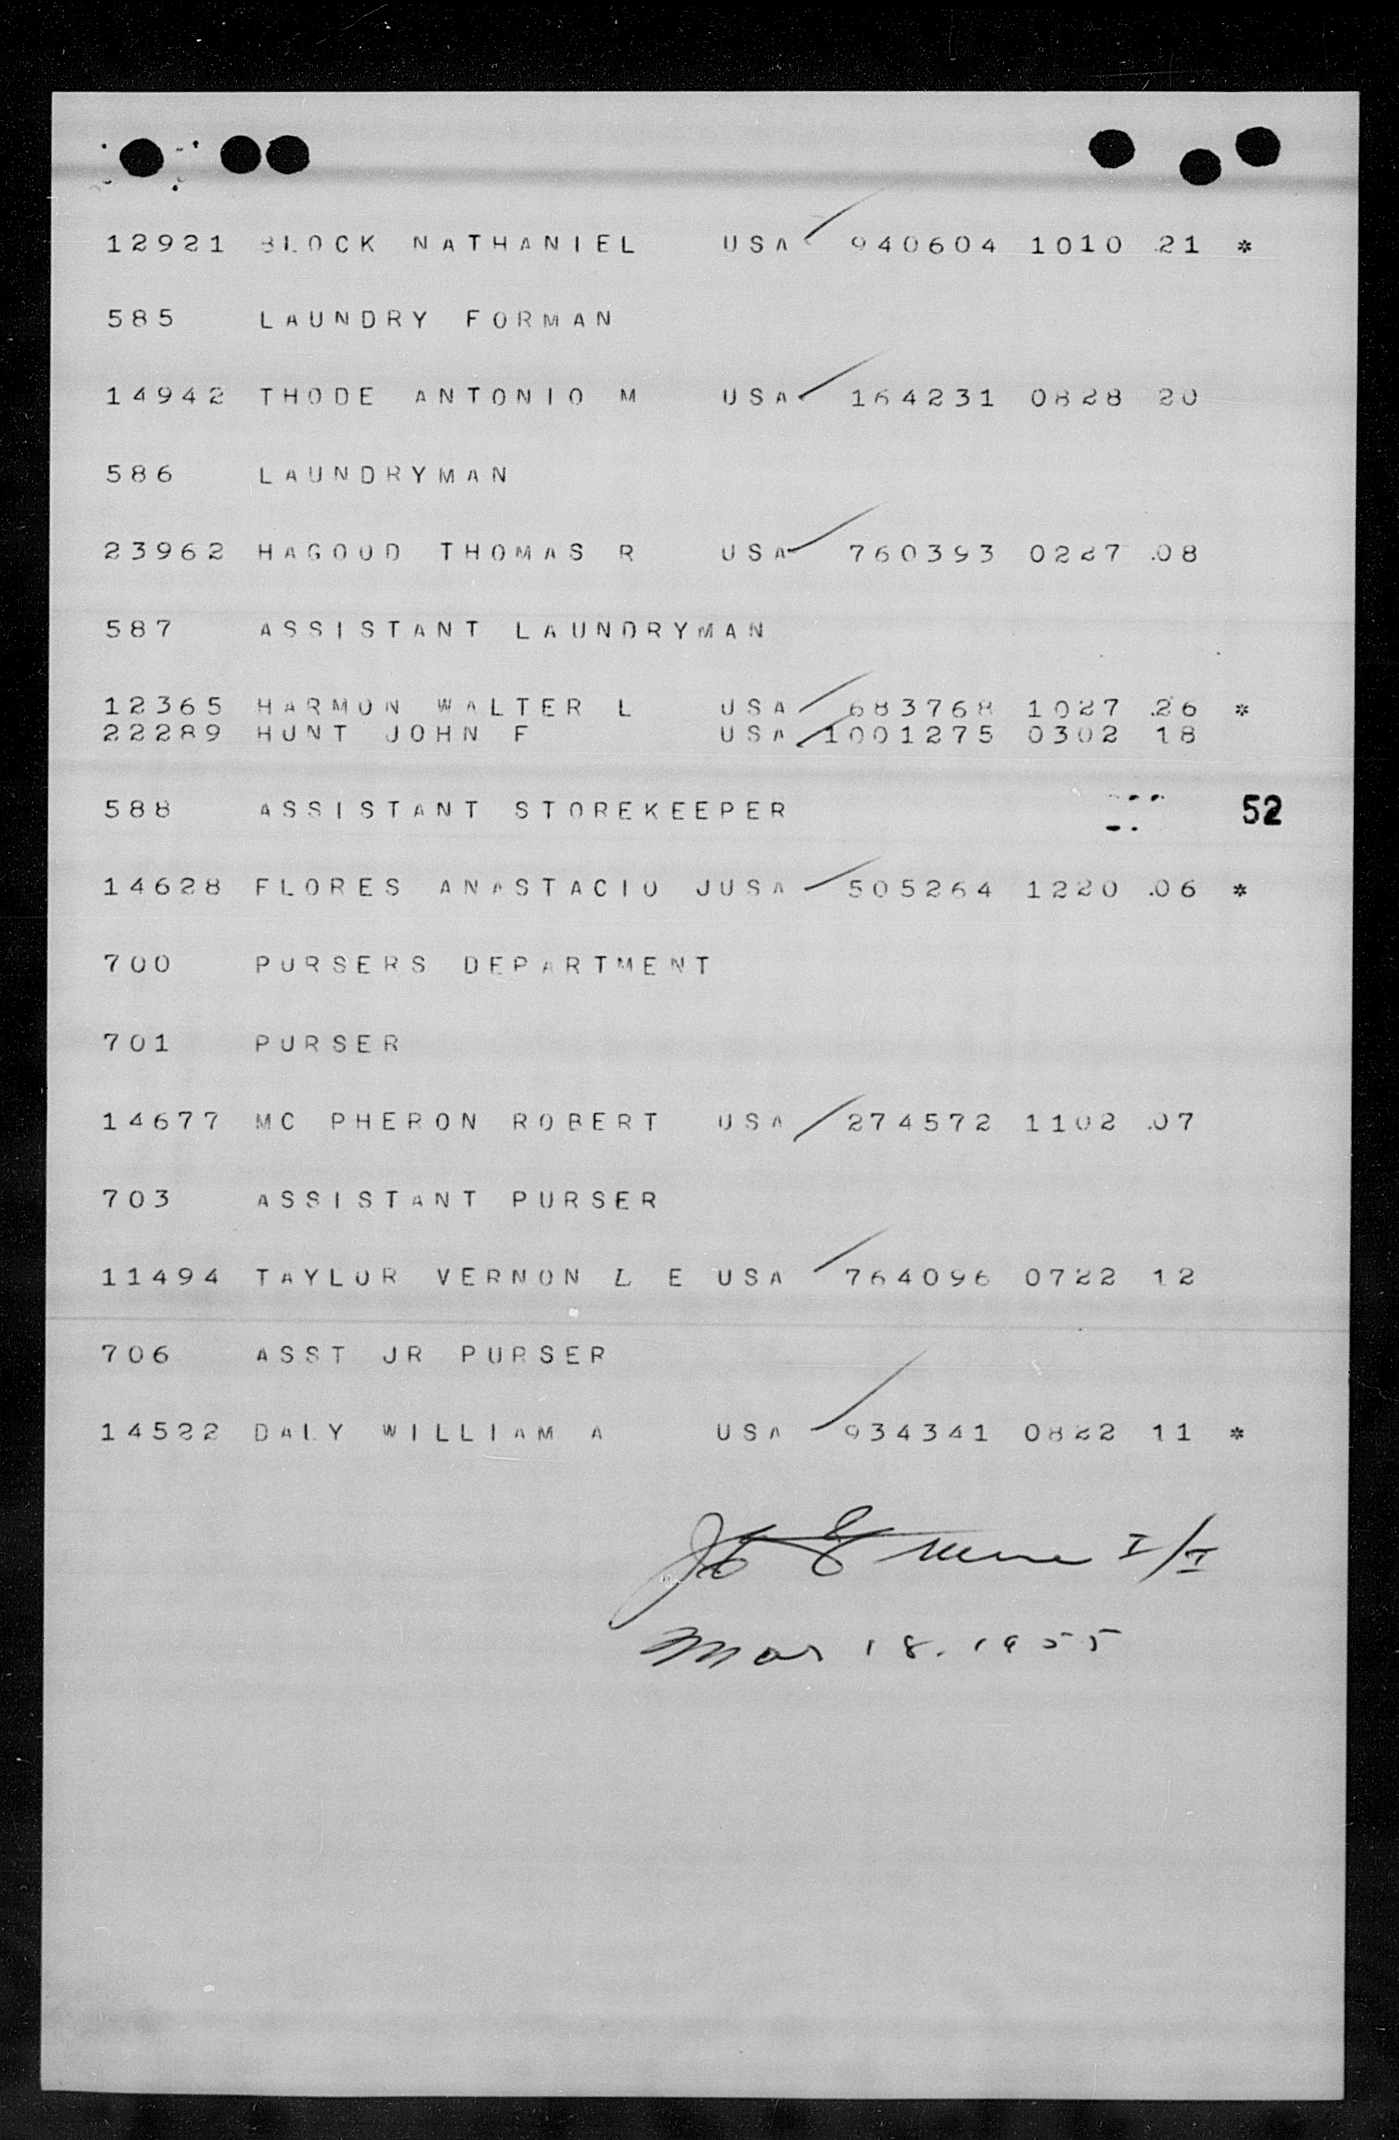 12921 BLOCK NATHANIEL USA 940604 1010 21 *
585 LAUNDRY FORMAN
14942 THODE ANTONIO M USA 164231 0828 20
586 LAUNDRYMAN
23962 HAGOOD THOMAS R USA 760393 0227 08
587 ASSISTANT LAUNDRYMAN
12365 HARMON WALTER L USA 683768 1027 26 *
22289 HUNT JOHN F USA 1001275 0302 18
588 ASSISTANT STOREKEEPER 52
14628 FLORES ANASTACIO JUSA 505264 1220 06 *
700 PURSERS DEPARTMENT
701 PURSER
14677 MC PHERON ROBERT USA 274572 1102 07
703 ASSISTANT PURSER
11494 TAYLOR VERNON L E USA 764096 0722 12
706 ASST JR PURSER
14522 DALY WILLIAM A USA 934341 0822 11 *
I/I
Mar 18. 1955